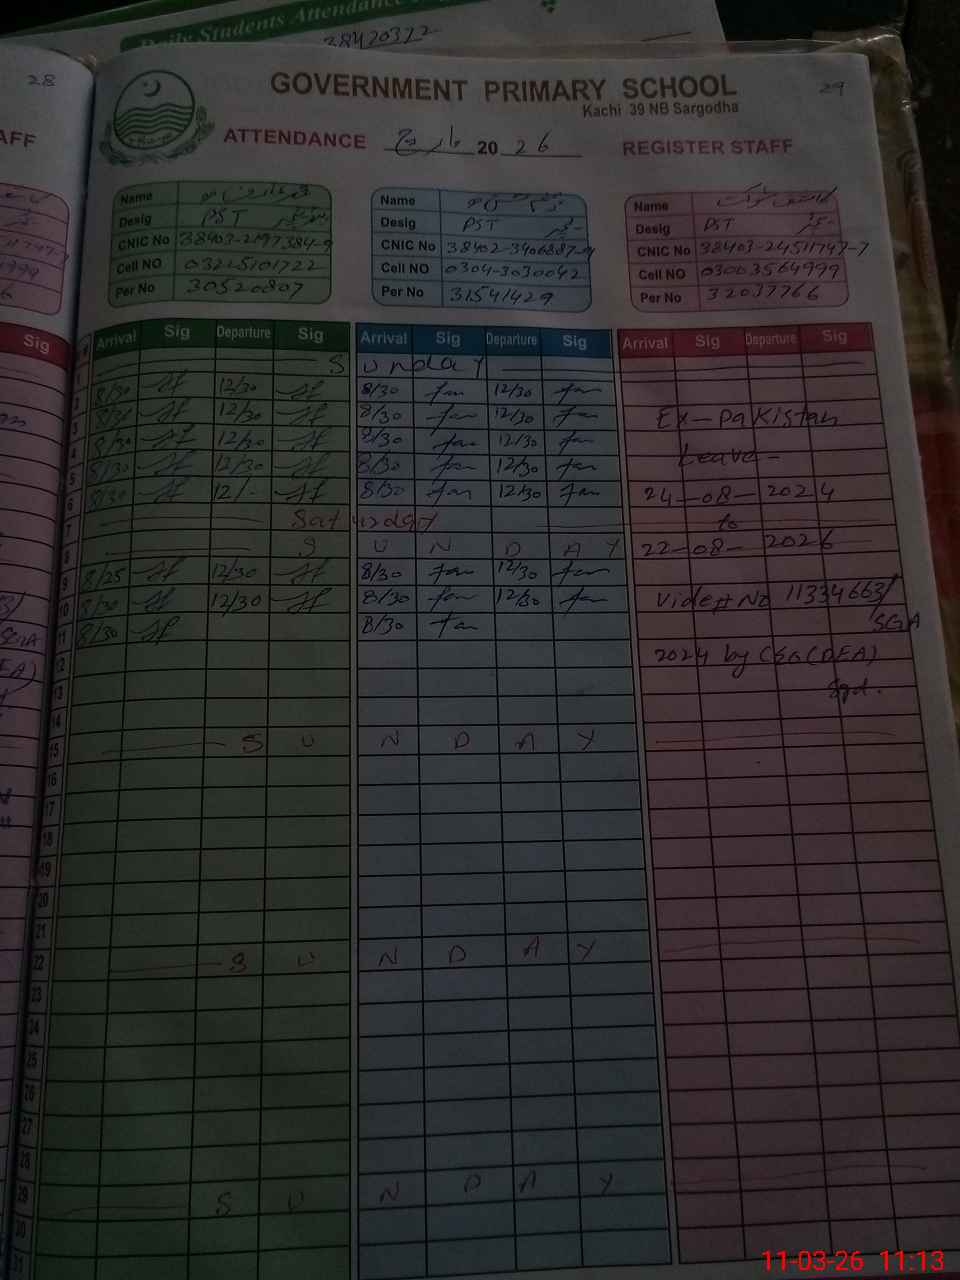 Daily Students Attendance
38420372
28
29
GOVERNMENT PRIMARY SCHOOL
Kachi 39 NB Sargodha
ATTENDANCE مارچ 20 26 REGISTER STAFF
AFF
Name
Desig PST
CNIC No 38403-2197384-9
Cell NO 03215101722
Per No 30520807
Name
Desig PST
CNIC No 38402-3406887-4
Cell NO 0304-3030042
Per No 31541429
Name
Desig PST
CNIC No 38403-2451747-7
Cell NO 03003564999
Per No 32037766
Sig
Arrival Sig Departure Sig Arrival Sig Departure Sig Arrival Sig Departure Sig
1 Sunday
2 8/30 12/30 8/30 12/30
3 8/30 12/30 8/30 12/30 Ex-Pakistan
4 8/30 12/30 8/30 12/30 Leave-
5 8/30 12/30 8/30 12/30
6 8/30 12/- 8/30 12/30 24-08-2024
7 Saturday to
8 S U N D A Y 22-08-2026
9 8/25 12/30 8/30 12/30
10 8/30 12/30 8/30 12/30 Vide # No 11334663/
SGA
11 8/30 8/30
12 2024 by CEO(DEA)
13 Sgd.
14
15 S U N D A Y
16
17
18
19
20
21
22 S U N D A Y
23
24
25
26
27
28
29 S U N D A Y
30
31
11-03-26 11:13